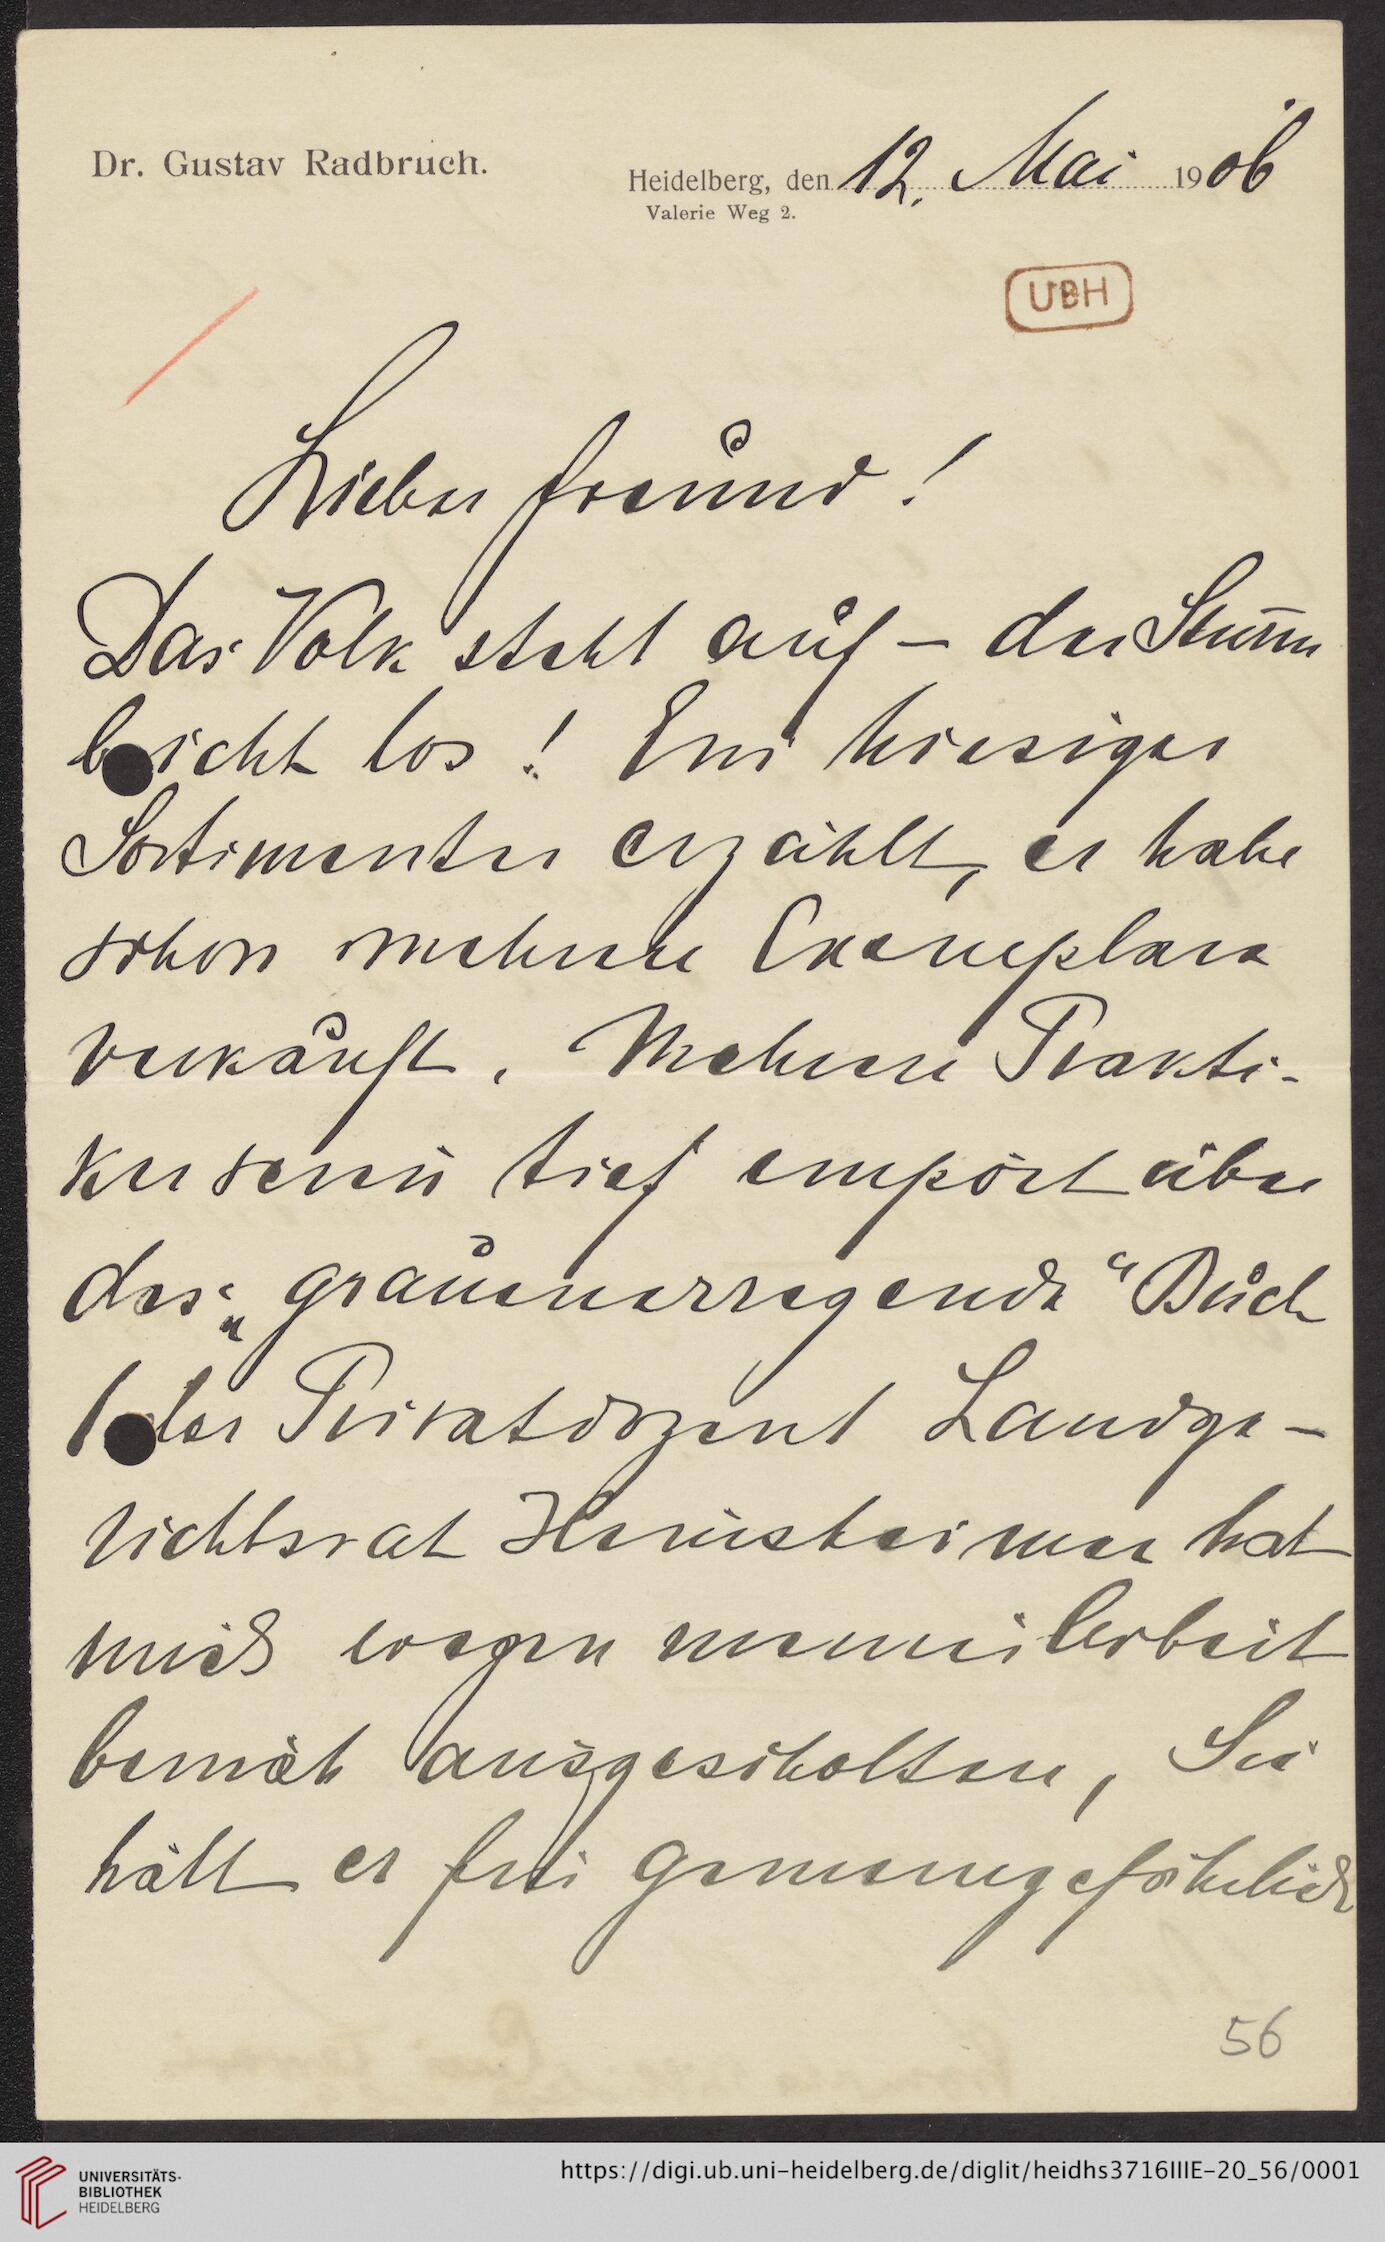 Dr. Gustav Radbruch.
Heidelberg, den 12. Mai 1906
Valerie Weg 2.
UBH
Lieber Freund!
Das Volk steht auf – der Sturm
bricht los! Ein hiesiger
Sortimenter erzählt, er habe
schon mehrere Exemplare
verkauft. Mehrere Prakti-
ker sein tief empört über
das „grauenerregende“ Buch
der Privatdozent Landge-
richtsrat Heinsheimer hat
mich wegen meiner Arbeit
ausgescholten, Sie
hält er für gemeingefährlich
56
UNIVERSITÄTS-
BIBLIOTHEK
HEIDELBERG
https://digi.ub.uni-heidelberg.de/diglit/heidhs3716IIIE-20_56/0001